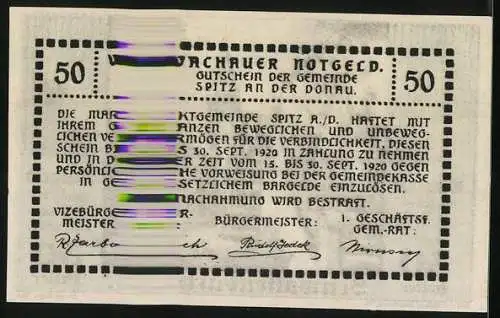 WACHAUER NOTGELD.
50 GUTSCHEIN DER GEMEINDE 50
SPITZ AN DER DONAU.
DIE MAR KTGEMEINDE SPITZ A./D. HAFTET MIT
IHREM G ANZEN BEWEGLICHEN UND UNBEWEG-
LICHEN VE RMÖGEN FÜR DIE VERBINDLICHKEIT, DIESEN
SCHEIN BI S 30. SEPT. 1920 IN ZAHLUNG ZU NEHMEN
UND IN D ER ZEIT VOM 15. BIS 30. SEPT. 1920 GEGEN
PERSÖNLI CHE VORWEISUNG BEI DER GEMEINDEKASSE
IN GE SETZLICHEM BARGELDE EINZULÖSEN.
NACHAHMUNG WIRD BESTRAFT.
VIZEBÜRGE R-
MEISTER BÜRGERMEISTER: 1. GESCHÄFTSF.
GEM.-RAT: